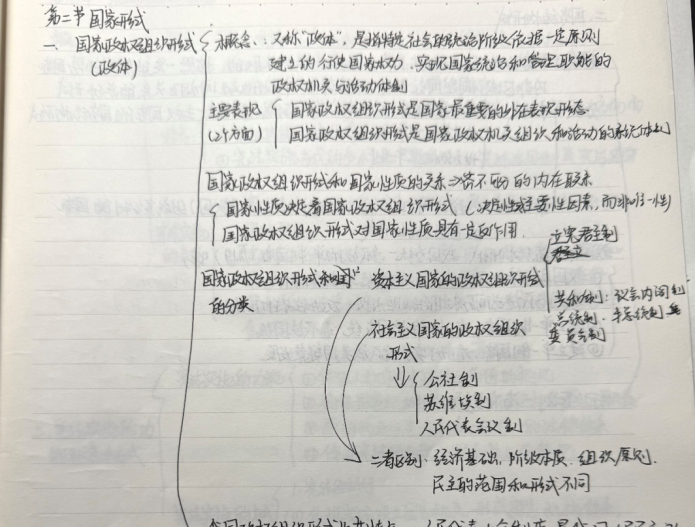 第二节 国家形式
一、国家政权组织形式
(政体)
概念：又称"政体"，是指特定社会的统治阶级依据一定原则
建立的行使国家权力，实现国家统治和管理职能的
政权机关的活动体制
主要表现
(2个方面)
国家政权组织形式是国家最重要的外在表现形态
国家政权组织形式是国家政权机关组织和活动的系统体制
国家政权组织形式和国家性质的关系⇒密不可分的内在联系
国家性质决定着国家政权组织形式（决定性或主要性因素，而非唯一性）
国家政权组织形式对国家性质具有一定反作用.
国家政权组织形式
的分类
资本主义国家的政权组织形式
立宪君主制
共和制：议会内阁制
总统制、半总统制
委员会制
社会主义国家的政权组织
形式
公社制
苏维埃制
人民代表会议制
二者区别：经济基础，阶级本质、组织原则、
民主的范围和形式不同